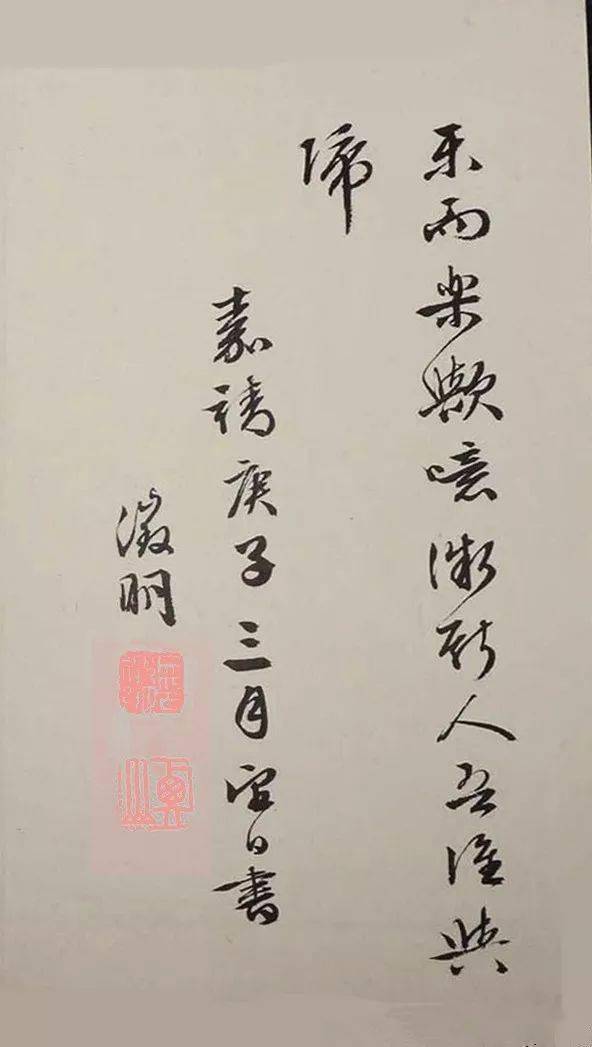 樂而樂歟噫微斯人吾誰與
歸
嘉靖庚子三月日書
徵明